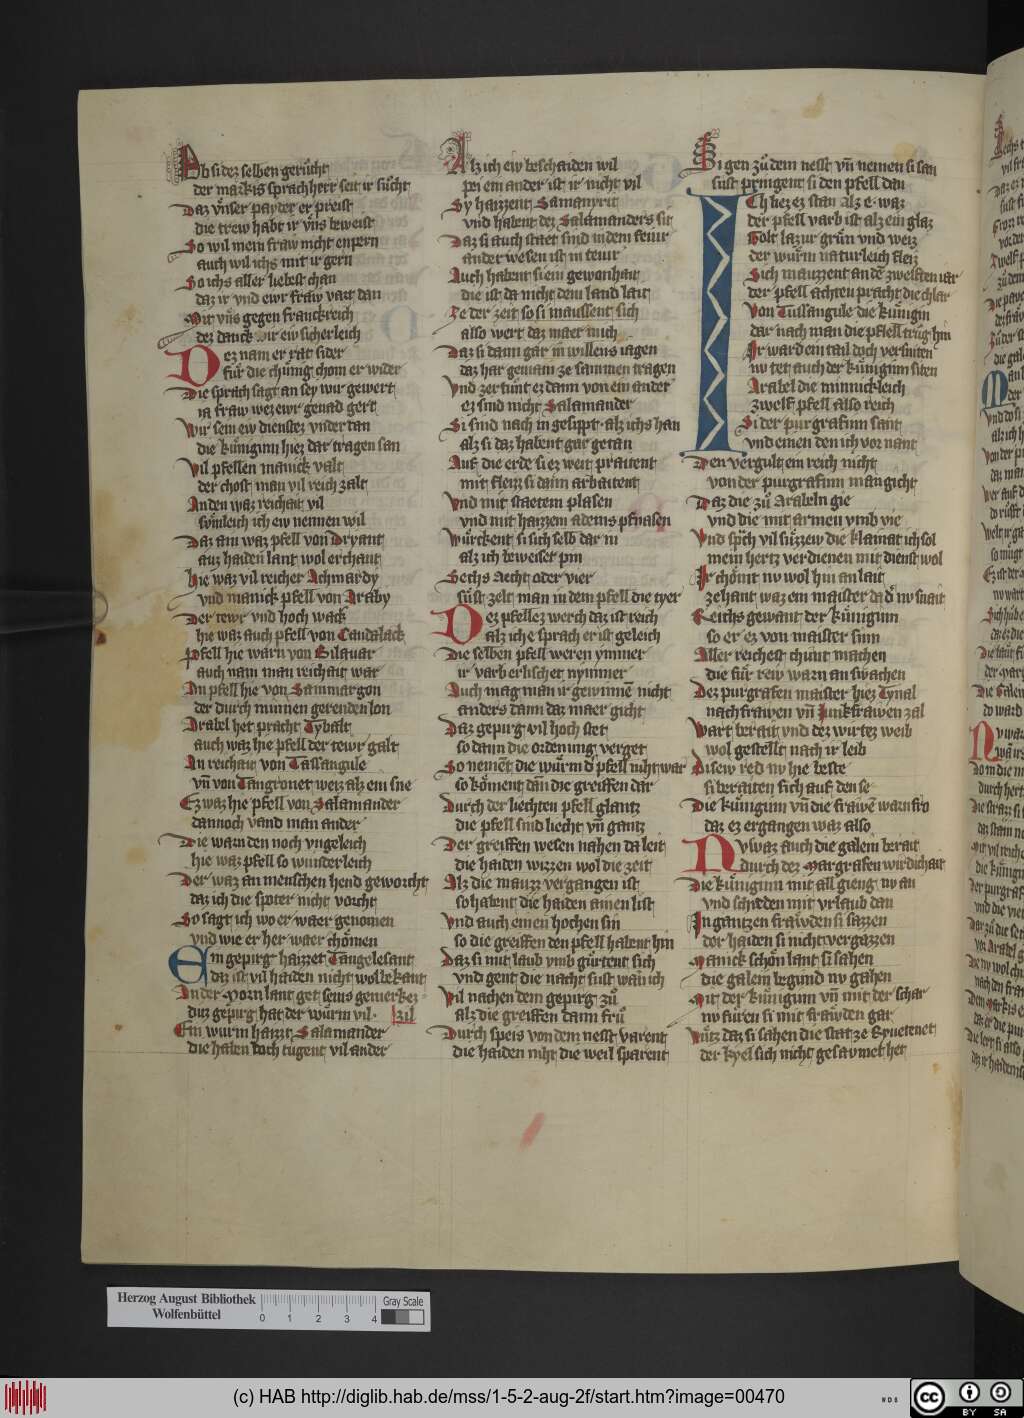 Ob si dez selben gerůcht
der markis sprach herr seit ir sůcht
Daz vnser payder er preist
die trew habt ir vns beweist
So wil mein fraw nicht enpern
auch wil ichs mit ir gern
So ichs aller liebest chan
daz ir vnd ewr fraw vart dan
Mit vns gegen franckreich
dez danck wir ew sicherleich
Dez nam er rat sider
fur die chünig chom er wider
Die sprach sagt an sey wir gewert
ia fraw wez ewr genad gert
Wir sein ew dienstez vndertan
die küniginn hiez dar tragen san
Vil pfellen manick valt
der chost man vil reich zalt
Anden waz reichait vil
sümleich ich ew nennen wil
Daz ain waz pfell von Dryant
auz haiden lant wol erchant
hie waz vil reicher Achmardy
vnd manick pfell von Araby
Der tewr vnd hoch wack
hie waz auch pfell von Caudalack
Pfell hie warn von Bilauar
auch nam man reichait war
An pfell hie von Sammargon
der durch minnen gerenden lon
Arabel het pracht Tybalt
auch waz hie pfell der tewr galt
An reichait von Tassangule
vn̄ von Tangronet weiz alz ein sne
Ez waz hie pfell von Salamander
dannoch vand man ander
Die warn den noch vngeleich
hie waz pfell so wunderleich
Der waz an menschen hend geworcht
daz ich die spoter nicht vorcht
So sagt ich wo er waer genomen
vnd wie er her waer chömen
Ein gepirg haizzet Tangelesant
daz ist vil haiden nicht wol bekant
In der Morn lant get seins gemerkez
ditz gepirg hat der würm vil. zil
Ein wurm haizzt Salamander
die haben doch tugent vil ander
Alz ich ew beschaiden wil
pei ein ander ist ir nicht vil
Sy haizzent Samanyrit
vnd habent dez Salamanders sit
Daz si auch staet sind in dem feiur
ander wesen ist in teiur
Auch habent si ein gewonhait
die ist da nicht dem land lait
Ze der zeit so si maussent sich
also wert daz maer mich
Daz si dann gar in willens iagen
daz har gemain ze sammen tragen
Vnd zertünt ez dann von ein ander
ez sind nicht Salamander
Si sind nach in gesippt alz ichs han
alz si daz habent gar getan
Auf die erde si ez weit praitent
mit fleizz si dann arbaitent
Vnd mit staetem plasen
vnd mit haizzem adems pfnasen
Würckent si sich selb dar in
alz ich beweiset pin
Sechs Aecht oder vier
süst zelt man in dem pfell die tyer
Dez pfellez werch daz ist reich
alz ich e sprach er ist geleich
Die selben pfell weren ymmer
ir varb erlischet nymmer
Auch mag man ir gewinnē nicht
anders dann daz maer gicht
Daz gepirg vil hoch stet
so dann die ordenung verget
So nemēt die würm d pfell niht war
so köment dan̄ die greiffen dar
Durch der liechten pfell glantz
die pfell sind liecht vn̄ gantz
Der greiffen wesen nahen da leit
die haiden wizzen wol die zeit
Alz die mauzz vergangen ist
so habent die haiden ainen list
Vnd auch einen hochen sin
so die greiffen den pfell habent hin
Daz si mit laub vmb gürtent sich
vnd gent die nacht sust wan ich
Vil nachen dem gepirg zů
alz die greiffen dann frů
Durch speis von dem nesst varent
die haiden niht die weil sparent
Si gen zů dem nesst vn̄ nemen si san
sust pringent si den pfell dan
Ich liez ez stan alz e waz
der pfell varb ist alz ein glaz
Golt lazur grün vnd weiz
der würm naturleich fleiz
Sich mauzzent an dē zwelften iar
der pfell achten pracht die chlar
Von Tussangule die künigin
dar nach man die pfell trůg hin
Ir ward ein tail doch versniten
nv tet auch der küniginn siten
Arabel die minnickleich
zwelf pfell also reich
Si der purgrafinn sant
vnd einen den ich vor nant
Den vergult ein reich nicht
von der purgrafinn man gicht
Daz die zů Arabeln gie
vnd die mit armen vmb vie
Vnd sprch vil süzzew die klamat ich sol
mein hertz verdienen mit dienst wol
Ir chömt nv wol hin an lait
zehant waz ein maister da d nv snait
Reichs gewant der küniginn
so er ez von maister sinn
Aller reichest chunt machen
die für rew warn an swachen
Dez purgrafen maister hiez Tynal
nach frawen vn̄ Junkfrawen zal
Wart berait vnd dez wirtez weib
wol gestellt nach ir leib
Disew red nv hie beste
si beraiten sich auf den se
Die küniginn vn̄ die frawē warn fro
daz ez ergangen waz also
Nv waz auch die galein berait
durch dez Margrafen wirdichait
Die küniginn mit all gieng nv an
vnd schieden mit vrlaub dan
In gantzen frawden si sazzen
der haiden si nicht vergazzen
Manick schön lant si sahen
die galein begund nv gahen
Mit der künigin vn̄ mit der schar
nv füren si mit frawden gar
Vntz daz si sahen die stat ze Ryuetenet
der kyel sich nicht gesavmet het
Herzog August Bibliothek
Wolfenbüttel
0 1 2 3 4
Gray Scale
(c) HAB http://diglib.hab.de/mss/1-5-2-aug-2f/start.htm?image=00470
WDB
CC BY SA